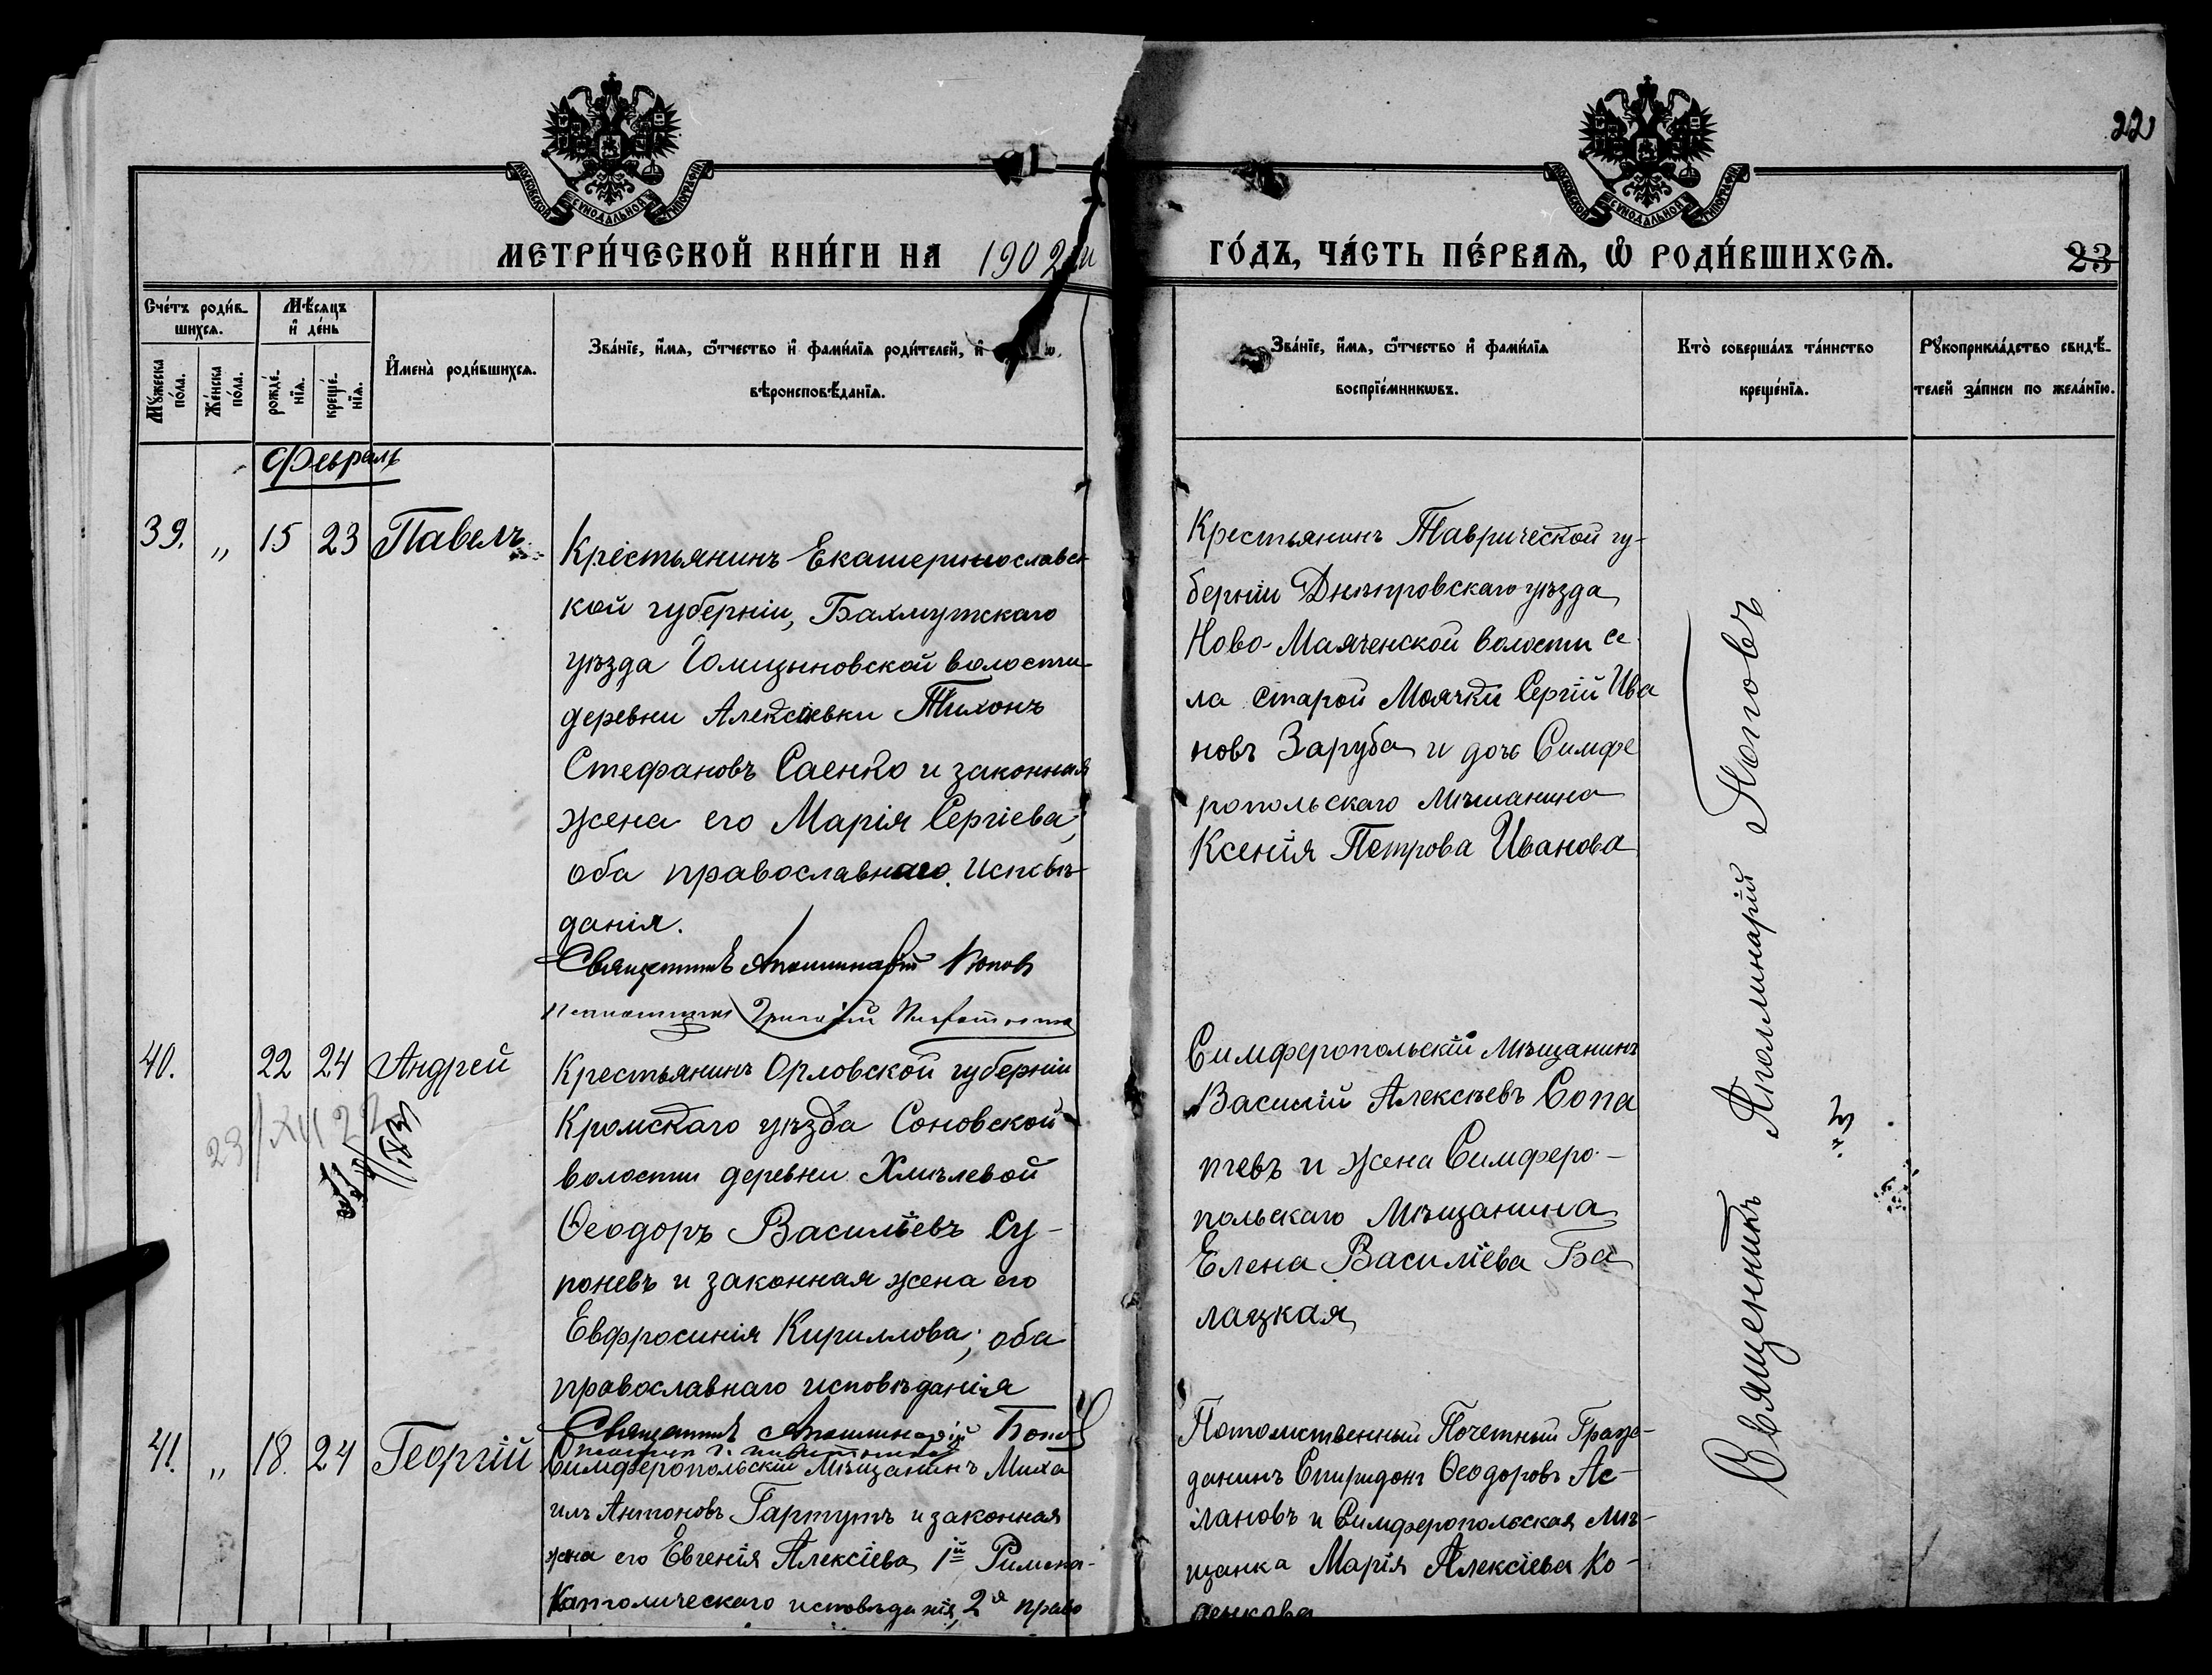 22
МОСКОВСКОЙ СѴНОДАЛЬНОЙ ТИПОГРАФІИ
МОСКОВСКОЙ СѴНОДАЛЬНОЙ ТИПОГРАФІИ
МЕТРИ́ЧЕСКОЙ КНИ́ГИ НА 1902 й ГО́ДЪ, ЧА́СТЬ ПЕ́РВАѦ, Ѽ РОДИ́ВШИХСѦ.
23
Сче́тъ роди́в-
шихсѧ.
Мꙋ́жеска
по́ла.
Же́нска
по́ла.
Мѣ́сѧцъ
и҆ де́нь
рожде́-
нїѧ.
креще́-
нїѧ.
И҆мена̀ роди́вшихсѧ.
Зва́нїе, и҆́мѧ, ѻ҆́тчество и҆ фами́лїѧ роди́телей, и҆
вѣроисповѣ́данїѧ.
Зва́нїе, и҆́мѧ, ѻ҆́тчество и҆ фами́лїѧ
воспрїе́мникωвъ.
Кто̀ соверша́лъ та́инство
креще́нїѧ.
Рꙋкоприкла́дство свидѣ́-
телей за́писи по жела́нїю.
Февраль
39. „ 15 23 Павелъ
Крестьянинъ Екатеринославс-
кой губерніи, Бахмутскаго
уѣзда Голицыновской волости
деревни Алексѣевки Тихонъ
Стефановъ Саенко и законная
жена его Марія Сергіева;
оба православнаго исповѣ-
данія.
Священникъ Аполлинарій Попов
Псаломщикъ Григорій
Крестьянинъ Таврической гу-
берніи Днѣпровскаго уѣзда
Ново-Маяченской волости се-
ла Старой Моячки Сергій Ива
новъ Заруба и дочь Симфе
ропольскаго Мѣщанина
Ксенія Петрова Иванова
40. 22 24 Андрей
Крестьянинъ Орловской губерніи
Кромскаго уѣзда Соновской
волости деревни Хмѣлевой
Ѳеодоръ Василіевъ Су-
поневъ и законная жена его
Евфросинія Кириллова; оба
православнаго исповѣданія
Священникъ Аполлинарій Попов
23/XII 22
Симферопольскій Мѣщанинъ
Василій Алексѣевъ Сопа
тевъ и жена Симферо-
польскаго Мѣщанина
Елена Василіева Ба
лацкая
41. „ 18. 24 Георгій
Симферопольскій Мѣщанинъ Миха
илъ Антоновъ Гартутъ и законная
жена его Евгенія Алексіева, 1й Римско-
Католическаго исповѣданія, 2я право
Потомственный Почетный Граж-
данинъ Спиридонъ Ѳеодоровъ Ас-
лановъ и Симферопольская Мѣ-
щанка Марія Алексіева Ко-
Священникъ Аполлинарій Поповъ